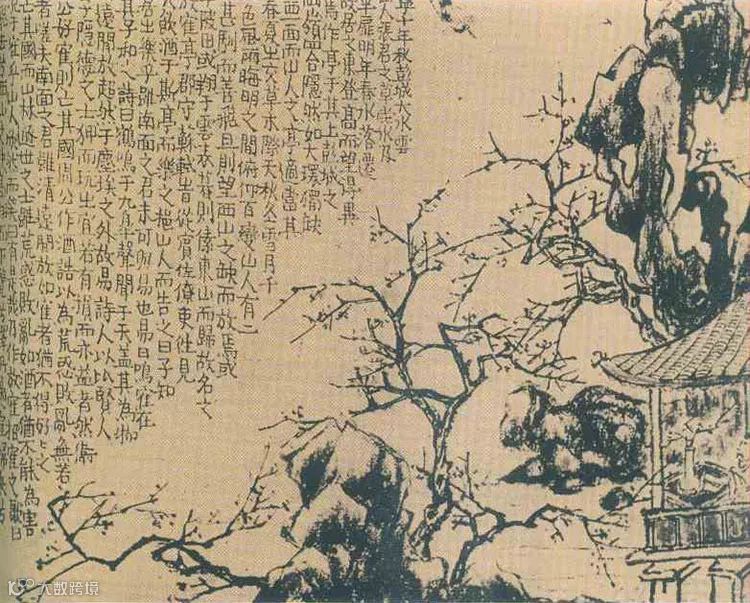 十年秋彭城大水雲
人張君之草堂水及
半扉明年春水落遷
故居之東登高而望得異
焉作亭于其上彭城之
岡嶺四合隱然如大環獨缺
西一面而山人之亭適當其
春夏之交草木際天秋冬雪月千
色風雨晦明之間俯仰百變山人有二
甚馴而善飛旦則望西山之缺而放焉或
于陂田或翔于雲表暮則傃東山而歸故名之
放鶴亭郡守蘇軾時從賓佐僚吏往見
人飲酒于斯亭而樂之挹山人而告之曰子知
居之樂乎雖南面之君未可與易也易曰鳴鶴在
其子和之詩曰鶴鳴于九皋聲聞于天蓋其為物
遠閒放超然于塵埃之外故易詩人以比賢人
子隱德之士狎而玩之宜若有損而亦益者然衛
公好鶴則亡其國周公作酒誥以為荒惑敗亂無若
者嗟夫南面之君雖清遠閒放如鶴者猶不得好之
亡其國而山林遁世之士雖荒惑敗亂如酒者猶不能為害
大數跨境